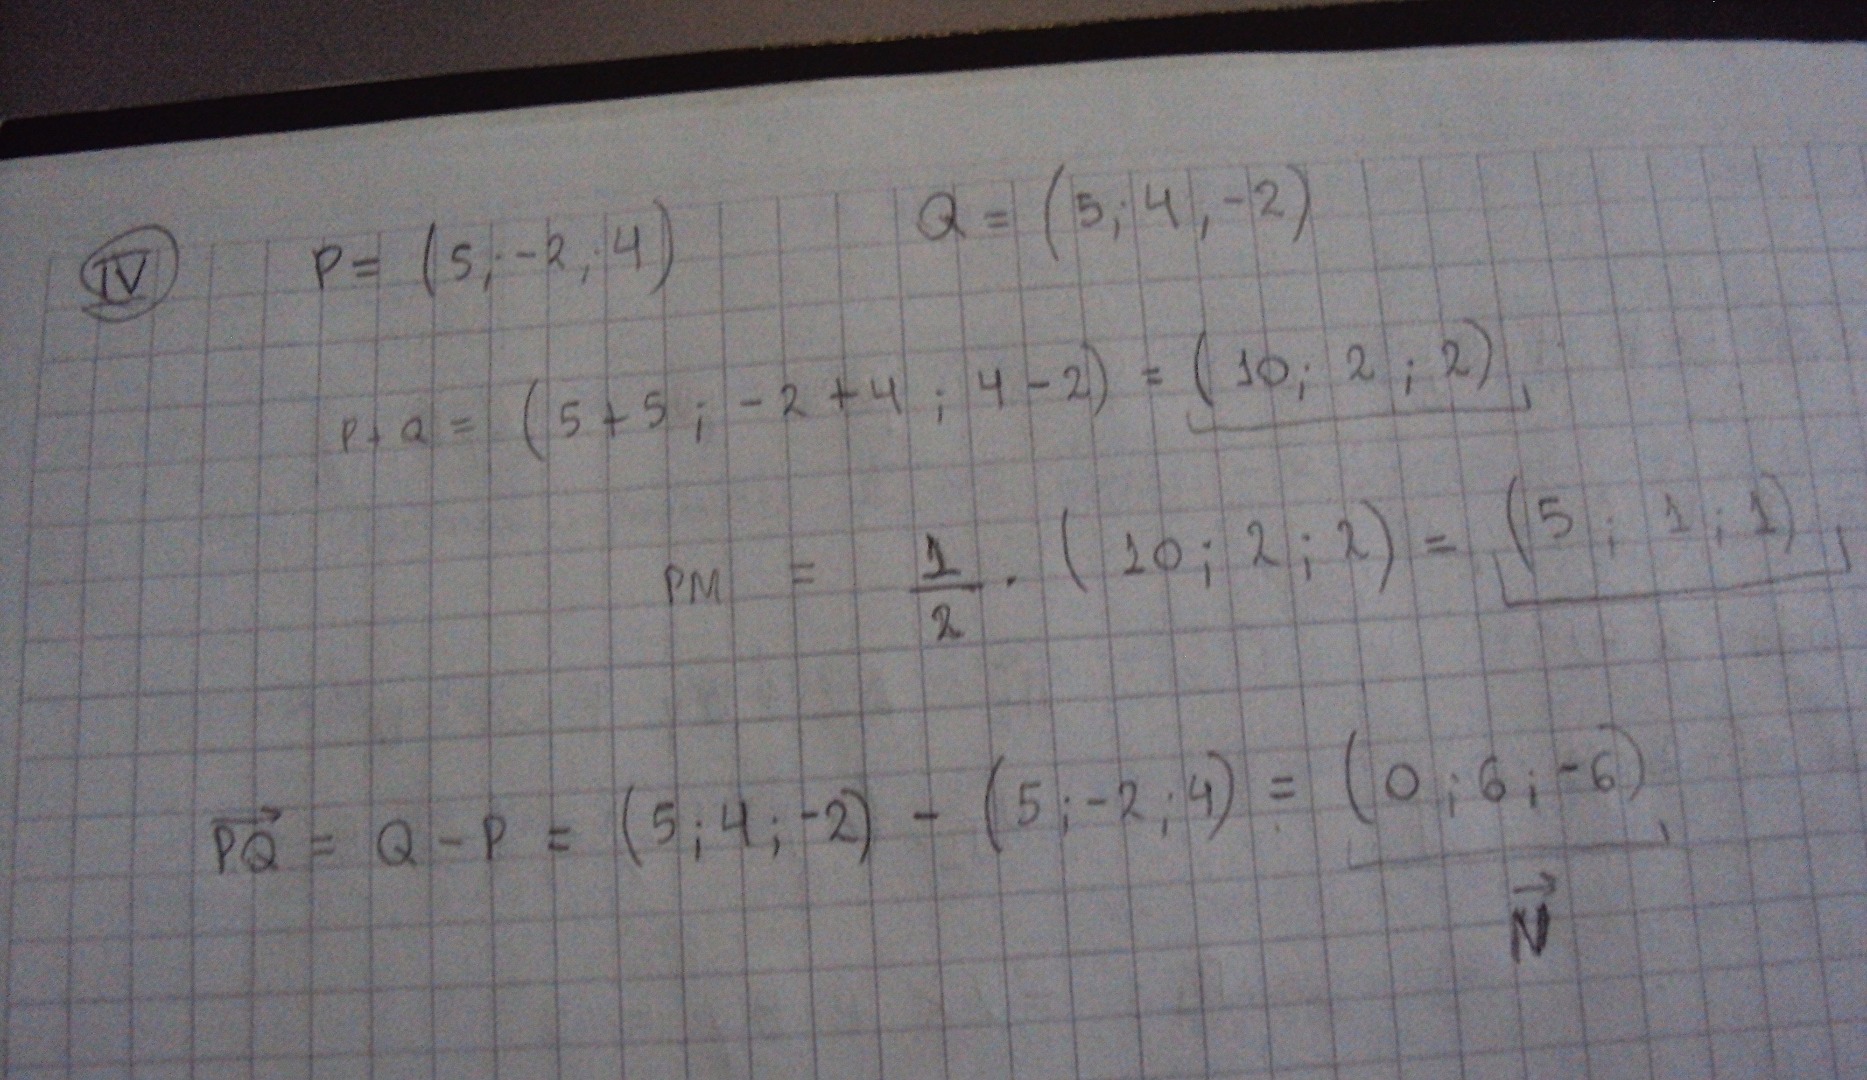 IV P = (5; -2; 4) Q = (5; 4, -2)
P+Q = (5+5; -2+4; 4-2) = (10; 2; 2)
PM = 1/2 · (10; 2; 2) = (5; 1; 1)
PQ = Q - P = (5; 4; -2) - (5; -2; 4) = (0; 6; -6)
N